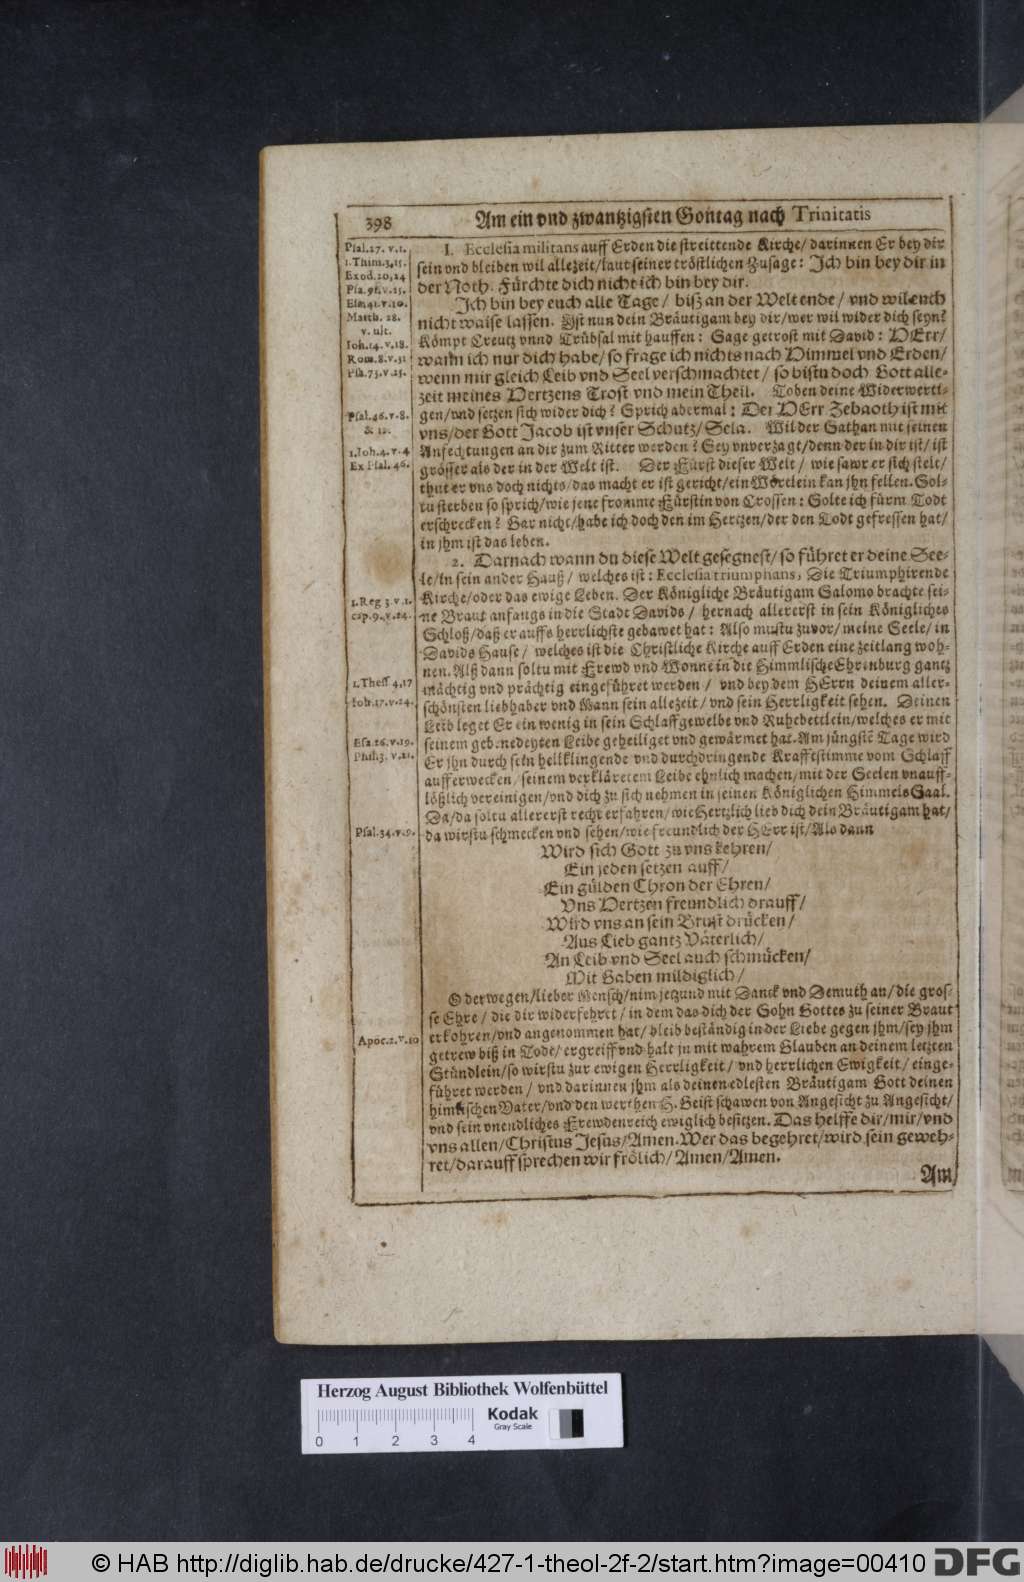 398 Am ein vnd zwantzigsten Sontag nach Trinitatis
Psal.27.v.1.
1.Thim.3,15.
Exod.20,24
Psa.91.v.15.
Esa.41.v.10.
Matth. 28.
v. ult.
Ioh.14.v.18.
Rom.8.v.31
Psa.73.v.25.
Psal.46.v.8.
& 12.
1.Ioh.4.v.4
Ex Psal.46.
1.Reg 3.v.1.
cap.9.v.24.
1.Thess 4,17
Ioh.17.v.24.
Esa.26.v.19.
Phil.3.v.21.
Psal.34.v.9.
Apoc.2.v.10
1. Ecclesia militans auff Erden die streittende Kirche/darinnen Er bey dir
sein vnd bleiben wil allezeit/laut seiner tröstlichen Zusage: Ich bin bey dir in
der Noth. Fürchte dich nicht ich bin bey dir.
Ich bin bey euch alle Tage/ biß an der Welt ende/ vnd wil euch
nicht waise lassen. Ist nun dein Bräutigam bey dir/wer wil wider dich seyn?
Kömpt Creutz vnnd Trübsal mit hauffen: Sage getrost mit David: HErr/
wann ich nur dich habe/so frage ich nichts nach Himmel vnd Erden/
wenn mir gleich Leib vnd Seel verschmachtet/ so bistu doch Gott alle-
zeit meines Hertzens Trost vnd mein Theil. Toben deine Widerwerti-
gen/vnd setzen sich wider dich? Sprich abermal: Der HErr Zebaoth ist mit
vns/der Gott Jacob ist vnser Schutz/Sela. Wil der Sathan mit seinen
Anfechtungen an dir zum Ritter werden? Sey vnverzagt/denn der in dir ist/ist
grösser als der in der Welt ist. Der Fürst dieser Welt/ wie sawr er sich stelt/
thut er vns doch nichts/das macht er ist gericht/ein Wörtlein kan jhn fellen. Sol-
tu sterben so sprich/wie jene fromme Fürstin von Crossen: Solte ich fürm Todt
erschrecken? Gar nicht/habe ich doch den im Hertzen/der den Todt gefressen hat/
in jhm ist das leben.
2. Darnach wann du diese Welt gesegnest/so führet er deine See-
le/in sein ander Hauß/ welches ist: Ecclesia triumphans, Die Triumphirende
Kirche/oder das ewige Leben. Der Königliche Bräutigam Salomo brachte sei-
ne Braut anfangs in die Stadt Davids/ hernach allererst in sein Königliches
Schloß/daß er auffs herrlichste gebawet hat: Also mustu zuvor/meine Seele/in
Davids Hause/ welches ist die Christliche Kirche auff Erden eine zeitlang woh-
nen. Alß dann soltu mit Frewd vnd Wonne in die Himmlische Ehrenburg gantz
mächtig vnd prächtig eingeführet werden/ vnd bey dem HErrn deinem aller-
schönsten liebhaber vnd Mann sein allezeit/vnd sein Herrligkeit sehen. Deinen
Leib leget Er ein wenig in sein Schlaffgewelbe vnd Ruhebettlein/welches er mit
seinem gebenedeyten Leibe geheiliget vnd gewärmet hat. Am jüngstē Tage wird
Er jhn durch sein hellklingende vnd durchdringende Kraffestimme vom Schlaff
aufferwecken/seinem verkläretem Leibe ehnlich machen/mit der Seelen vnauff-
lößlich vereinigen/vnd dich zu sich nehmen in seinen Königlichen HimmelsSaal.
Da/da soltu allererst recht erfahren/wie Hertzlich lieb dich dein Bräutigam hat/
da wirstu schmecken vnd sehen/wie freundlich der HErr ist/Als dann
Wird sich Gott zu vns kehren/
Ein jeden setzen auff/
Ein gülden Chron der Ehren/
Vns Hertzen freundlich drauff/
Wird vns an sein Brust drücken/
Aus Lieb gantz Väterlich/
An Leib vnd Seel auch schmücken/
Mit Gaben mildiglich/
O derwegen/lieber Mensch/nim jetzund mit Danck vnd Demuth an/die gros-
se Ehre/ die dir widerfehret/ in dem das dich der Sohn Gottes zu seiner Braut
erkohren/vnd angenommen hat/bleib beständig in der Liebe gegen jhm/sey jhm
getrew biß in Tode/ergreiff vnd halt jn mit wahrem Glauben an deinem letzten
Stündlein/so wirstu zur ewigen Herrligkeit/ vnd herrlichen Ewigkeit/ einge-
führet werden/ vnd darinnen jhm als deinen edlesten Bräutigam Gott deinen
himlischen Vater/vnd den werthen H. Geist schawen von Angesicht zu Angesicht/
vnd sein vnendliches Frewdenreich ewiglich besitzen. Das helffe dir/mir/vnd
vns allen/Christus Jesus/Amen. Wer das begehret/wird sein geweh-
ret/darauff sprechen wir frölich/Amen/Amen.
Am
Herzog August Bibliothek Wolfenbüttel
Kodak
Gray Scale
0 1 2 3 4
© HAB http://diglib.hab.de/drucke/427-1-theol-2f-2/start.htm?image=00410 DFG